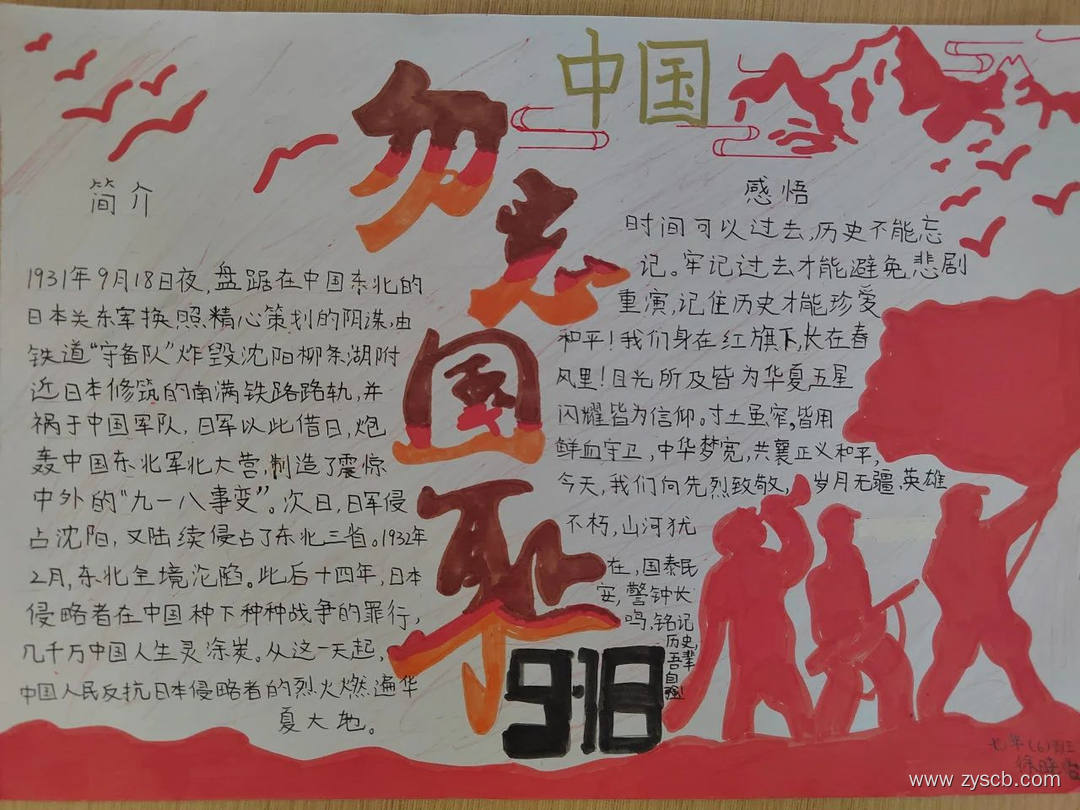 中国
勿忘国耻
918
简介
1931年9月18日夜,盘踞在中国东北的
日本关东军换照精心策划的阴谋,由
铁道“守备队”炸毁沈阳柳条湖附
近日本修筑的南满铁路路轨,并
祸于中国军队,日军以此借日,炮
轰中国东北军北大营,制造了震惊
中外的“九一八事变”。次日,日军侵
占沈阳,又陆续侵占了东北三省。1932年
2月,东北全境沦陷。此后十四年,日本
侵略者在中国种下种种战争的罪行,
几千万中国人生灵涂炭。从这一天起,
中国人民反抗日本侵略者的烈火燃遍华
夏大地。
感悟
时间可以过去,历史不能忘
记。牢记过去才能避免悲剧
重演,记住历史才能珍爱
和平!我们身在红旗下,长在春
风里!目光所及皆为华夏五星
闪耀皆为信仰。寸土虽窄,皆用
鲜血守卫,中华梦宽,共襄正义和平,
今天,我们向先烈致敬,岁月无疆,英雄
不朽,山河犹
在,国泰民
安,警钟长
鸣,铭记
历史,
吾辈
自
强!
七年(6)班
www.zyscb.com